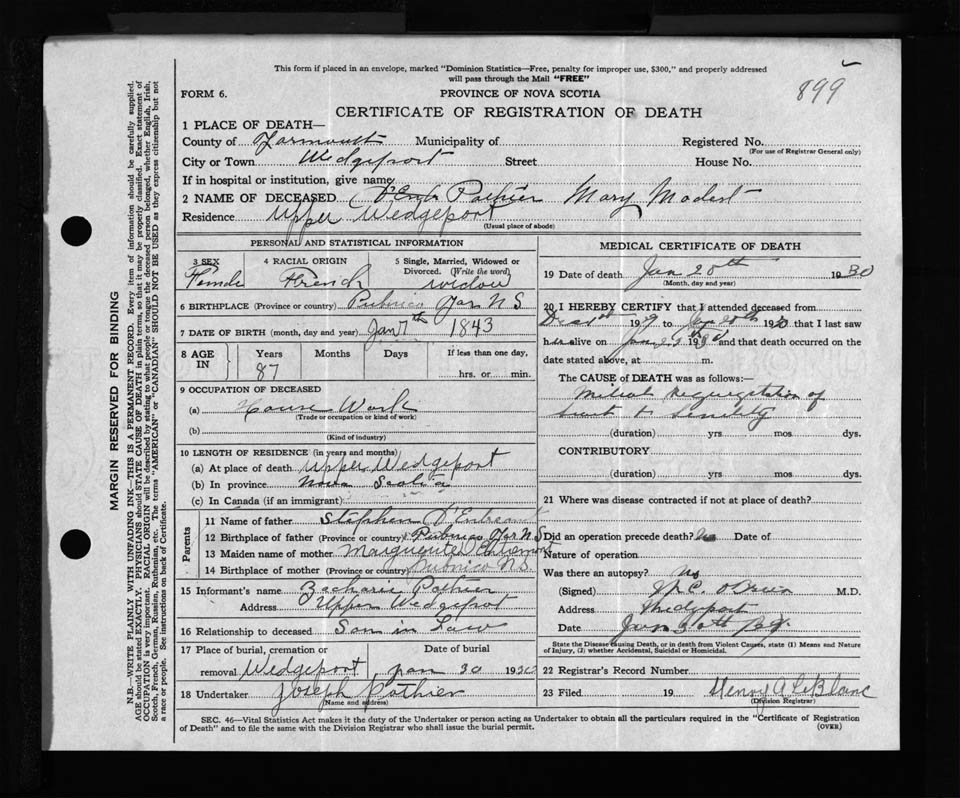 This form if placed in an envelope, marked "Dominion Statistics—Free, penalty for improper use, $300," and properly addressed
will pass through the Mail "FREE"
899
FORM 6. PROVINCE OF NOVA SCOTIA
CERTIFICATE OF REGISTRATION OF DEATH
1 PLACE OF DEATH—
County of Yarmouth Municipality of Registered No.
(For use of Registrar General only)
City or Town Wedgeport Street House No.
If in hospital or institution, give name
2 NAME OF DECEASED Pothier Mary Modest
Residence Upper Wedgeport
(Usual place of abode)
PERSONAL AND STATISTICAL INFORMATION
3 SEX 4 RACIAL ORIGIN 5 Single, Married, Widowed or
Divorced. (Write the word)
Female French widow
6 BIRTHPLACE (Province or country) Pubnico Yar N S
7 DATE OF BIRTH (month, day and year) Jan 7th 1843
8 AGE IN Years Months Days If less than one day,
87 hrs. or min.
9 OCCUPATION OF DECEASED
(a) House Work
(Trade or occupation or kind of work)
(b)
(Kind of industry)
10 LENGTH OF RESIDENCE (in years and months)
(a) At place of death Upper Wedgeport
(b) In province Nova Scotia
(c) In Canada (if an immigrant)
Parents
11 Name of father Stephen D'Entremont
12 Birthplace of father (Province or country) Pubnico Yar N S
13 Maiden name of mother Marguerite
14 Birthplace of mother (Province or country) Pubnico N.S.
15 Informant's name Zacharie Pothier
Address Upper Wedgeport
16 Relationship to deceased Son in Law
17 Place of burial, cremation or Date of burial
removal Wedgeport Jan 30 1930
18 Undertaker Joseph Pothier
(Name and address)
MEDICAL CERTIFICATE OF DEATH
19 Date of death Jan 28th 1930
(Month, day and year)
20 I HEREBY CERTIFY that I attended deceased from
19 to 19 that I last saw
h alive on 19 and that death occurred on the
date stated above, at m.
The CAUSE of DEATH was as follows:—
Mitral Regurgitation of
heart & Senility
(duration) yrs mos dys.
CONTRIBUTORY
(duration) yrs mos dys.
21 Where was disease contracted if not at place of death?
Did an operation precede death? No Date of
Nature of operation
Was there an autopsy? No
(Signed) O'Brien M.D.
Address Wedgeport
Date Jan 30th
State the Disease Causing Death, or in death from Violent Causes, state (1) Means and Nature
of Injury, (2) whether Accidental, Suicidal or Homicidal.
22 Registrar's Record Number
23 Filed 19 Henry A LeBlanc
(Division Registrar)
SEC. 46—Vital Statistics Act makes it the duty of the Undertaker or person acting as Undertaker to obtain all the particulars required in the "Certificate of Registration
of Death" and to file the same with the Division Registrar who shall issue the burial permit. (OVER)
MARGIN RESERVED FOR BINDING
N.B.—WRITE PLAINLY WITH UNFADING INK—THIS IS A PERMANENT RECORD. Every item of information should be carefully supplied.
AGE should be stated EXACTLY. PHYSICIANS should STATE CAUSE OF DEATH in plain terms, so that it may be properly classified. Exact statement of
OCCUPATION is very important. RACIAL ORIGIN will be described by stating to what people or tongue the deceased person belonged, whether English, Irish,
Scotch, French, German, Russian, Ruthenian, etc. The terms "AMERICAN" or "CANADIAN" SHOULD NOT BE USED as they express citizenship but not
a race or people. See instructions on back of Certificate.